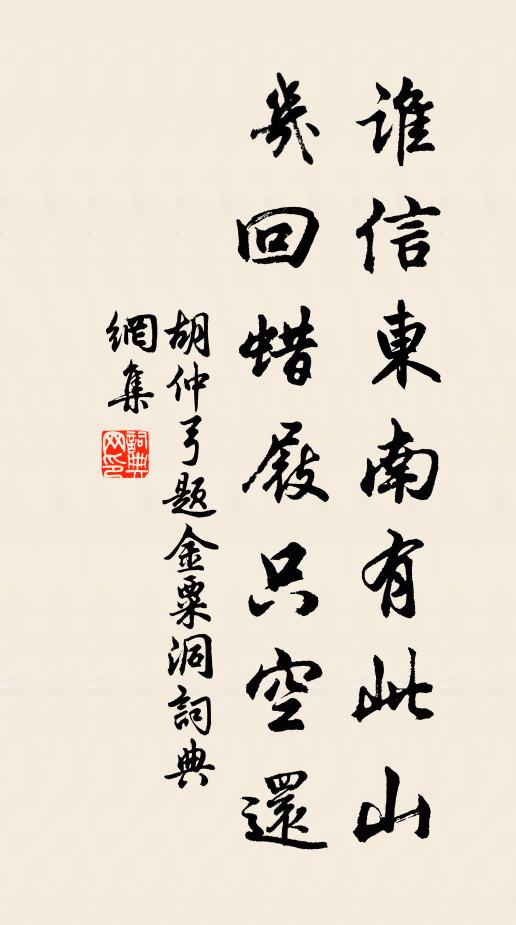 誰信東南有此山
幾回蜡屐只空還
胡仲弓題金粟洞詞典
網集
詞典網印